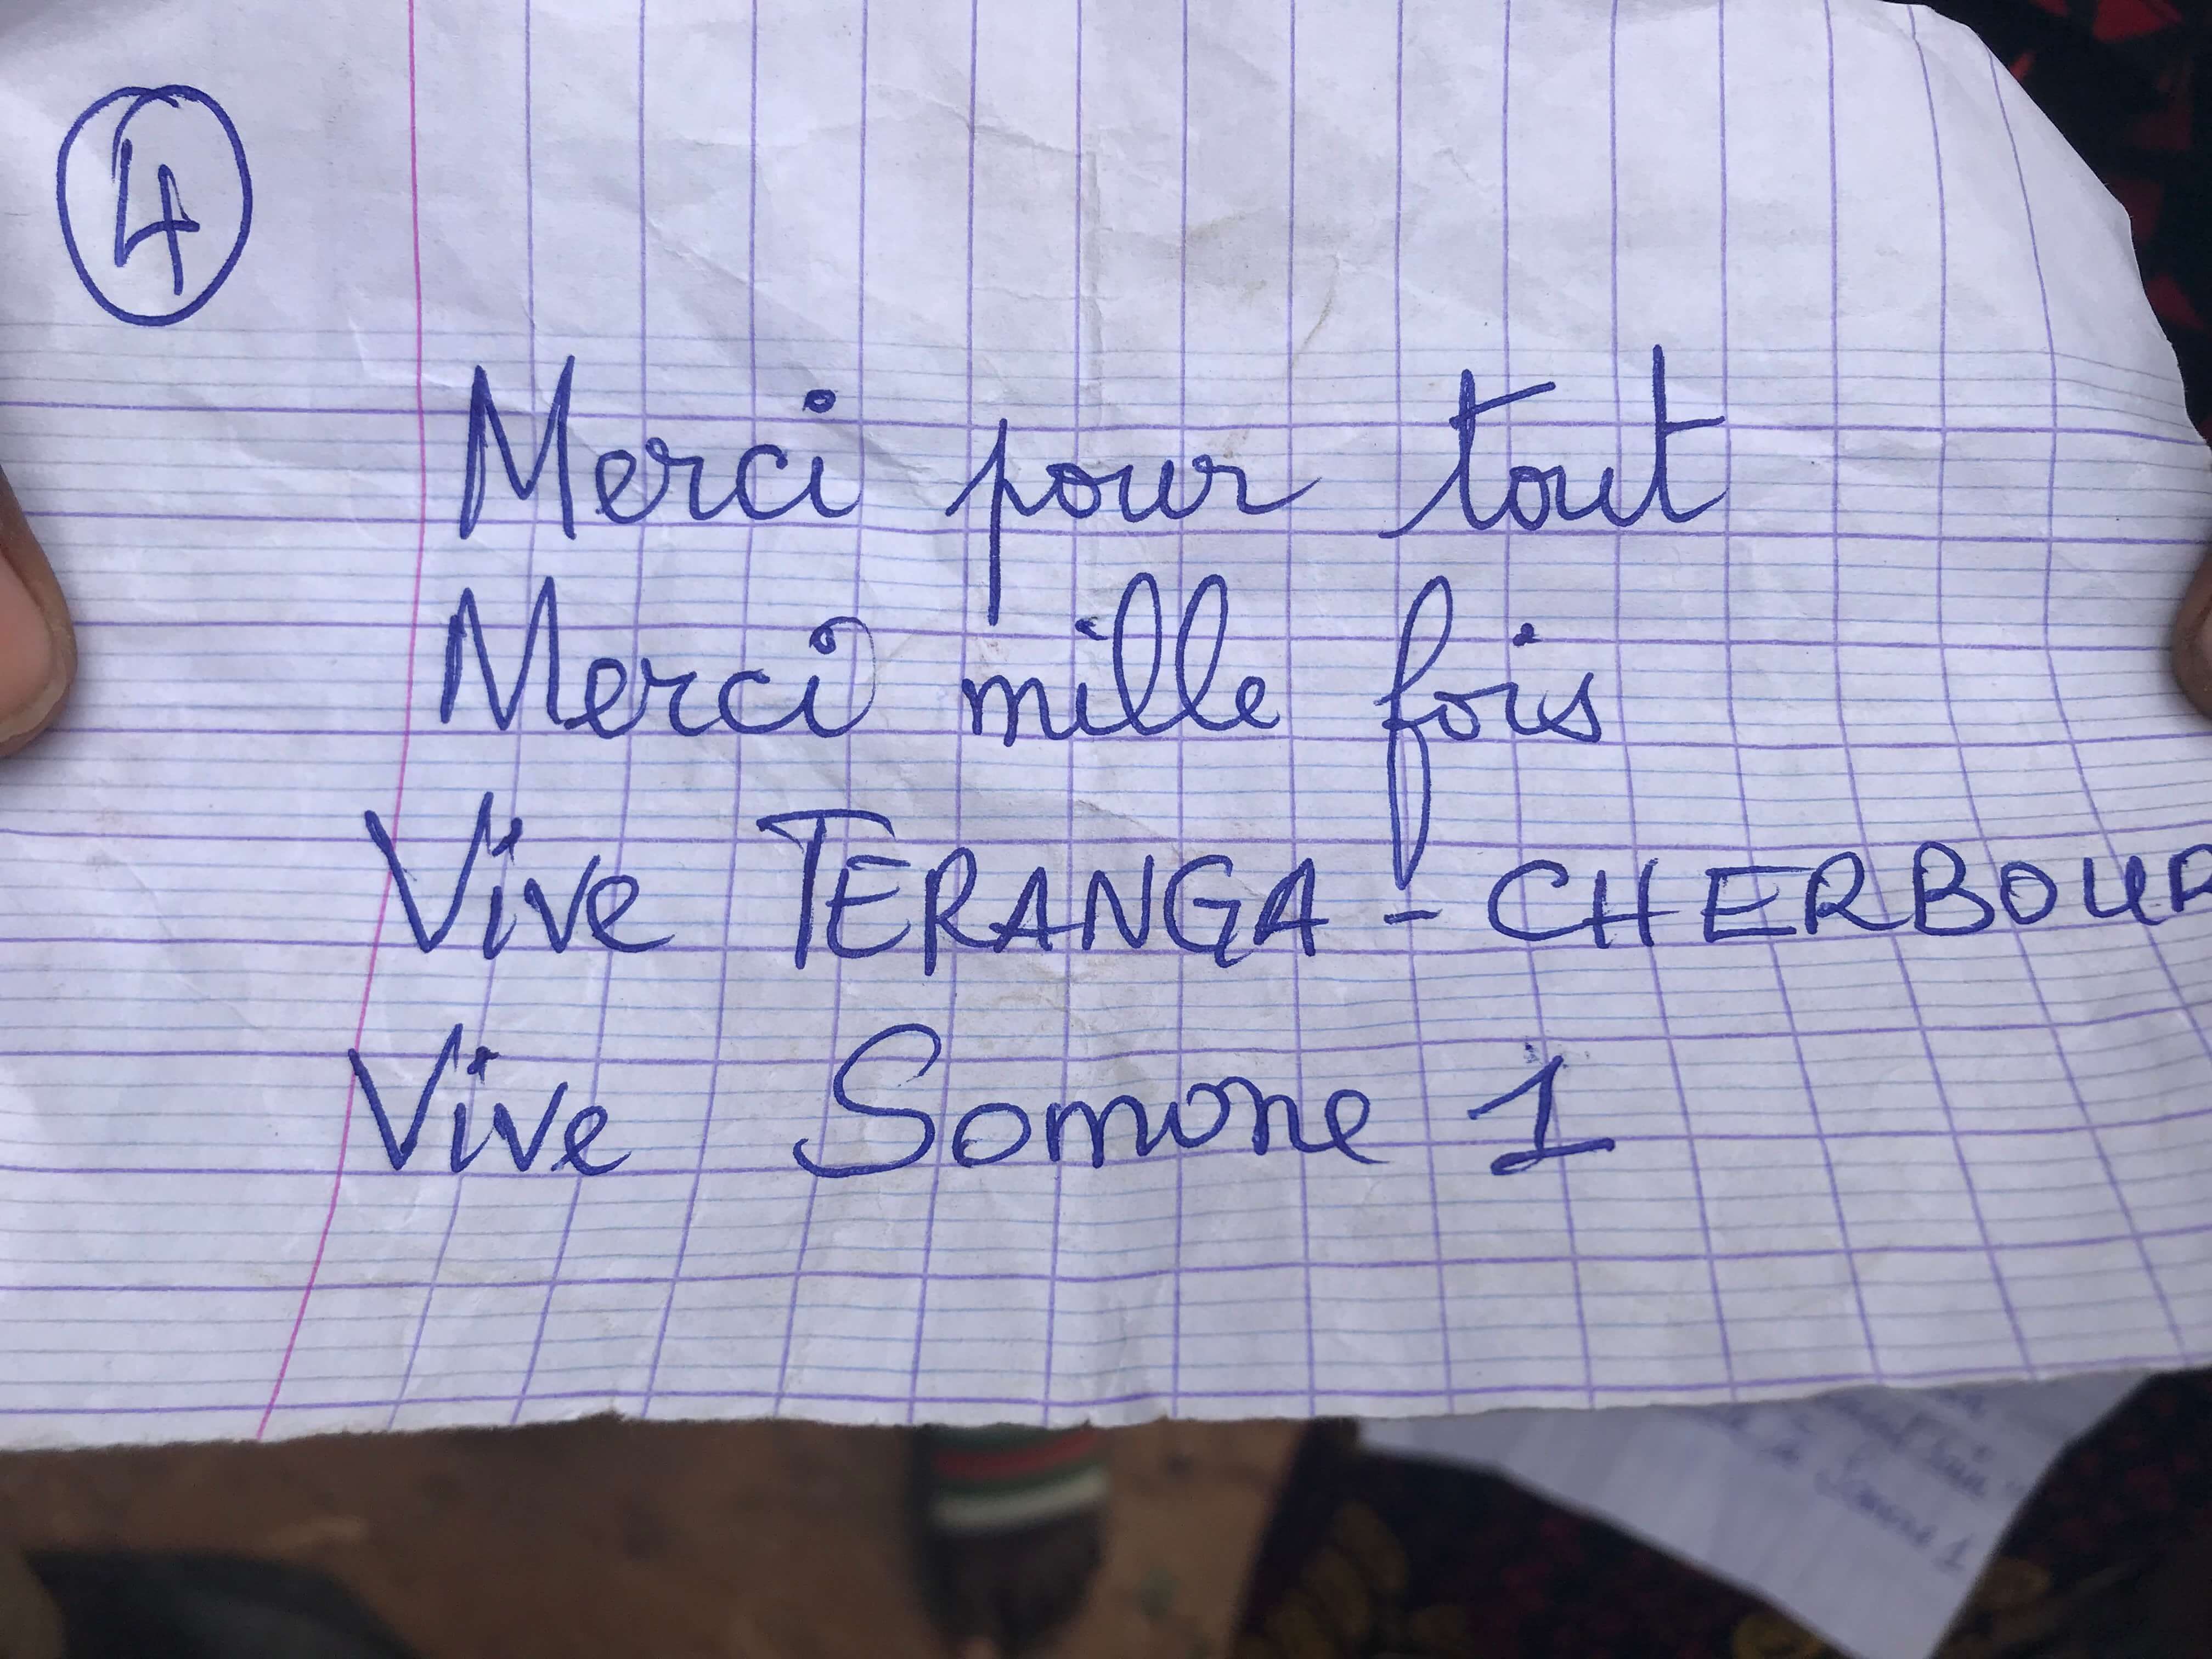 4
Merci pour tout
Merci mille fois
Vive TERANGA - CHERBOUR
Vive Somone 1